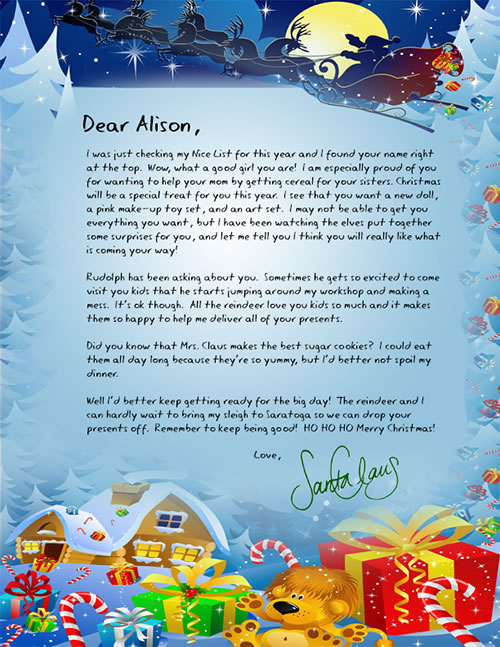 Dear Alison,
I was just checking my Nice List for this year and I found your name right
at the top.  Wow, what a good girl you are!  I am especially proud of you
for wanting to help your mom by getting cereal for your sisters. Christmas
will be a special treat for you this year.  I see that you want a new doll,
a pink make-up toy set, and an art set.  I may not be able to get you
everything you want, but I have been watching the elves put together
some surprises for you, and let me tell you I think you will really like what
is coming your way!
Rudolph has been asking about you.  Sometimes he gets so excited to come
visit you kids that he starts jumping around my workshop and making a
mess.  It's ok though.  All the reindeer love you kids so much and it makes
them so happy to help me deliver all of your presents.
Did you know that Mrs. Claus makes the best sugar cookies?  I could eat
them all day long because they're so yummy, but I'd better not spoil my
dinner.
Well I'd better keep getting ready for the big day!  The reindeer and I
can hardly wait to bring my sleigh to Saratoga so we can drop your
presents off.  Remember to keep being good!  HO HO HO Merry Christmas!
Love,
Santa Claus